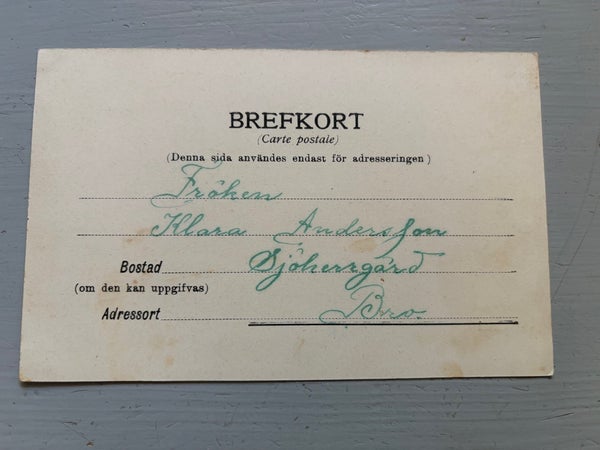 BREFKORT
(Carte postale)
(Denna sida användes endast för adresseringen)
Fröken
Klara Andersson
Bostad Sjöherrgård
(om den kan uppgifvas)
Adressort Bro.